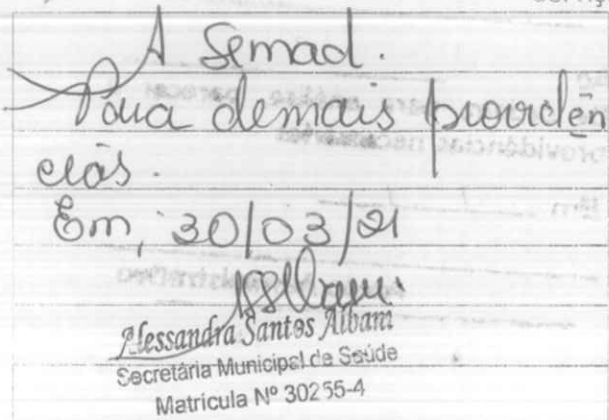 A Semad.
Para demais providên
cias.
Em, 30/03/21
Alessandra Santos Albani
Secretária Municipal de Saúde
Matrícula Nº 30255-4